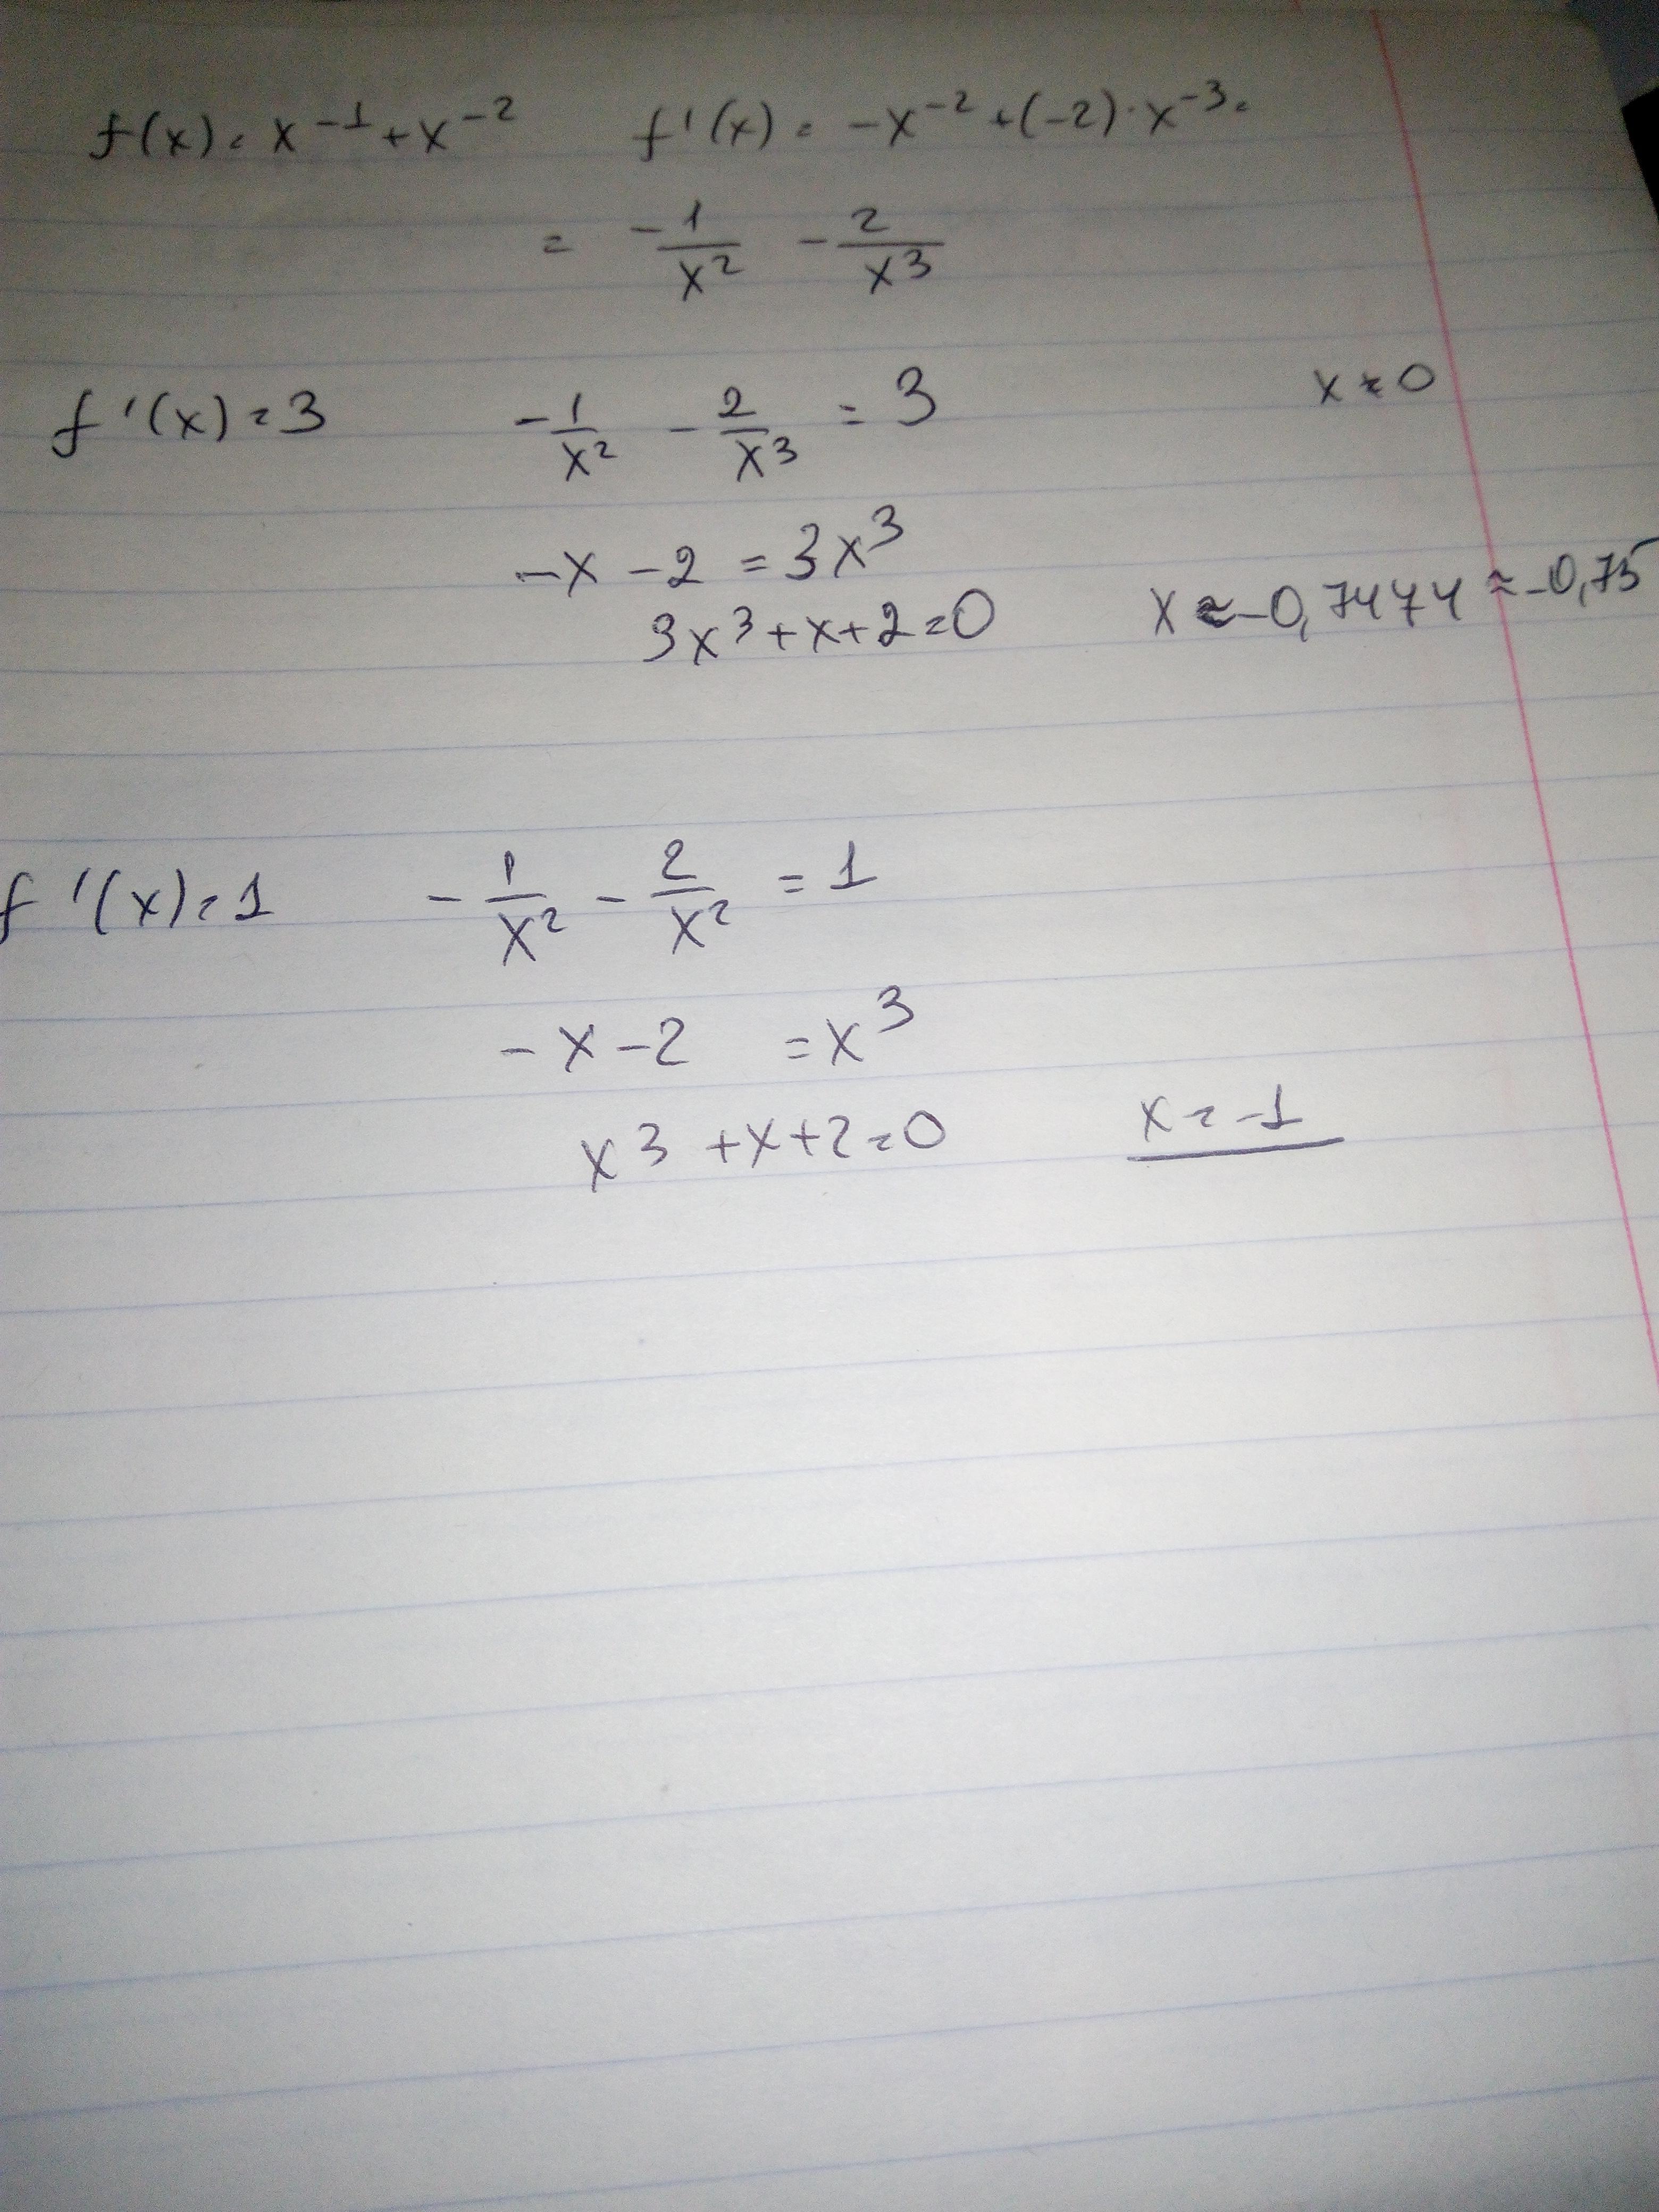 f(x) = x⁻¹ + x⁻² f'(x) = -x⁻² + (-2) · x⁻³ =
= -1/x² - 2/x³
f'(x) = 3 -1/x² - 2/x³ = 3 x ≠ 0
-x - 2 = 3x³
3x³ + x + 2 = 0 x ≈ -0,7474 ≈ -0,75
f'(x) = 1 -1/x² - 2/x² = 1
-x - 2 = x³
x³ + x + 2 = 0 x = -1